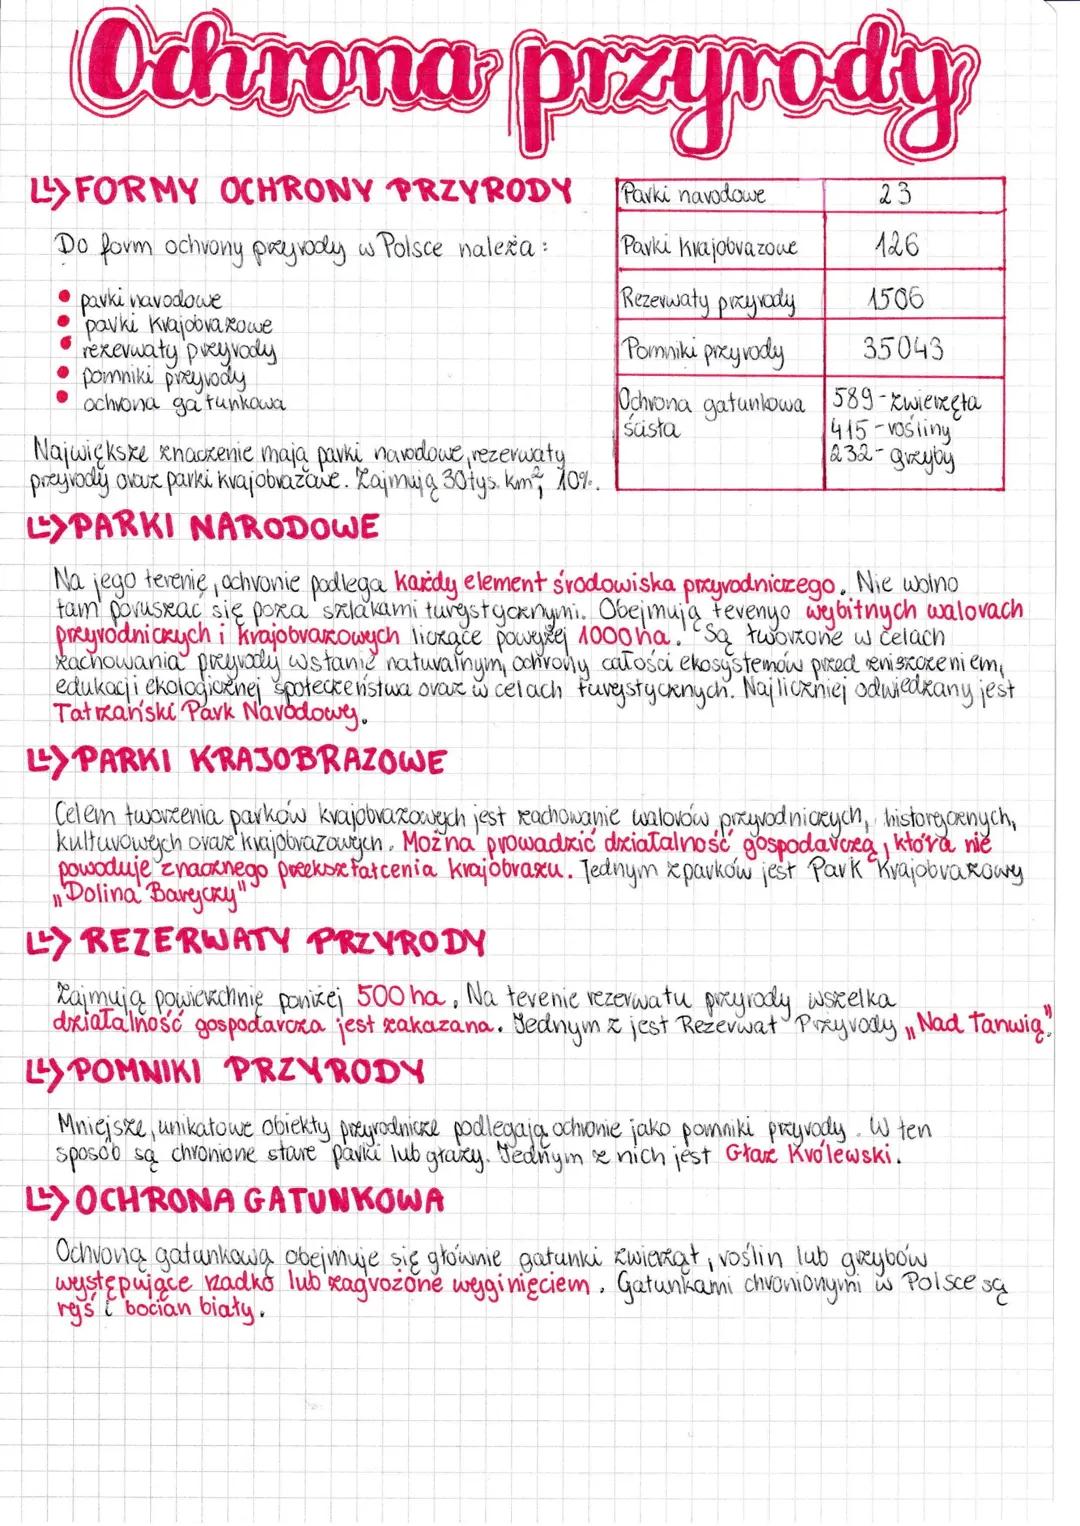 Ochrona przyrody
↳> FORMY OCHRONY PRZYRODY
Do form ochrony przyrody w Polsce należa:
• parki narodowe
• parki krajobrazowe
• rezerwaty przyrody
• pomniki przyrody
• ochrona gatunkowa
Największe znaczenie mają parki narodowe, rezerwaty
przyrody oraz parki krajobrazowe. Zajmują 30 tys. km², 10%.
Parki narodowe 23
Parki krajobrazowe 126
Rezerwaty przyrody 1506
Pomniki przyrody 35043
Ochrona gatunkowa 589 - zwierzęta
ścisła 415 - rośliny
232 - grzyby
↳> PARKI NARODOWE
Na jego terenie, ochronie podlega każdy element środowiska przyrodniczego. Nie wolno
tam poruszać się poza szlakami turystycznymi. Obejmują tereny o wybitnych walorach
przyrodniczych i krajobrazowych liczące powyżej 1000 ha. Są tworzone w celach
zachowania przyrody w stanie naturalnym, ochrony całości ekosystemów przed zniszczeniem,
edukacji ekologicznej społeczeństwa oraz w celach turystycznych. Najliczniej odwiedzany jest
Tatrzański Park Narodowy.
↳> PARKI KRAJOBRAZOWE
Celem tworzenia parków krajobrazowych jest zachowanie walorów przyrodniczych, historycznych,
kulturowych oraz krajobrazowych. Można prowadzić działalność gospodarczą, która nie
powoduje znacznego przekształcenia krajobrazu. Jednym z parków jest Park Krajobrazowy
„Dolina Baryczy"
↳> REZERWATY PRZYRODY
Zajmują powierzchnię poniżej 500 ha. Na terenie rezerwatu przyrody wszelka
działalność gospodarcza jest zakazana. Jednym z jest Rezerwat Przyrody „Nad Tanwią".
↳> POMNIKI PRZYRODY
Mniejsze, unikatowe obiekty przyrodnicze podlegają ochronie jako pomniki przyrody. W ten
sposób są chronione stare parki lub głazy. Jednym z nich jest Głaz Królewski.
↳> OCHRONA GATUNKOWA
Ochroną gatunkową obejmuje się głównie gatunki zwierząt, roślin lub grzybów
występujące rzadko lub zagrożone wyginięciem. Gatunkami chronionymi w Polsce są
ryś i bocian biały.